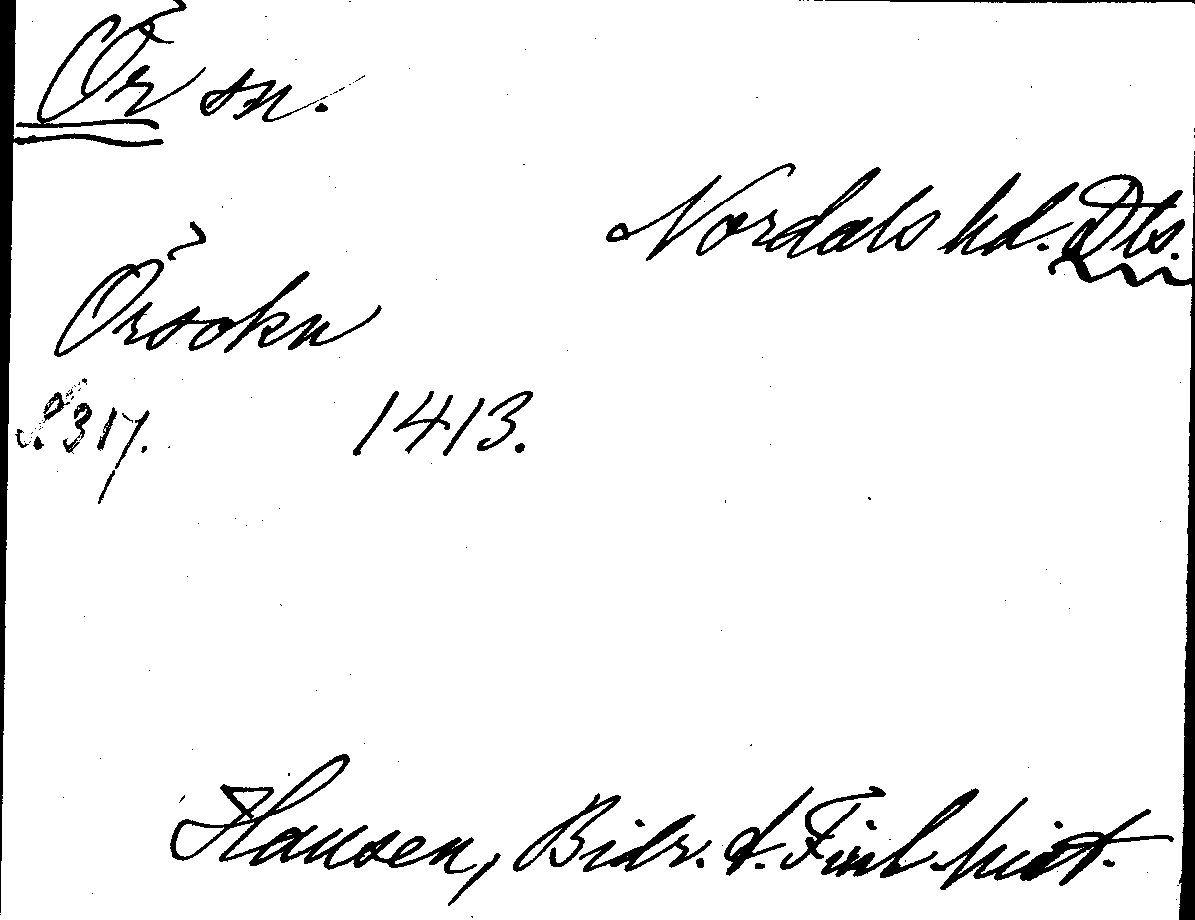 Ör sn.
Nordals hd. Dls.
Örsokn
S. 317. 1413.
Hausen, Bidr. t. Finl. hist.